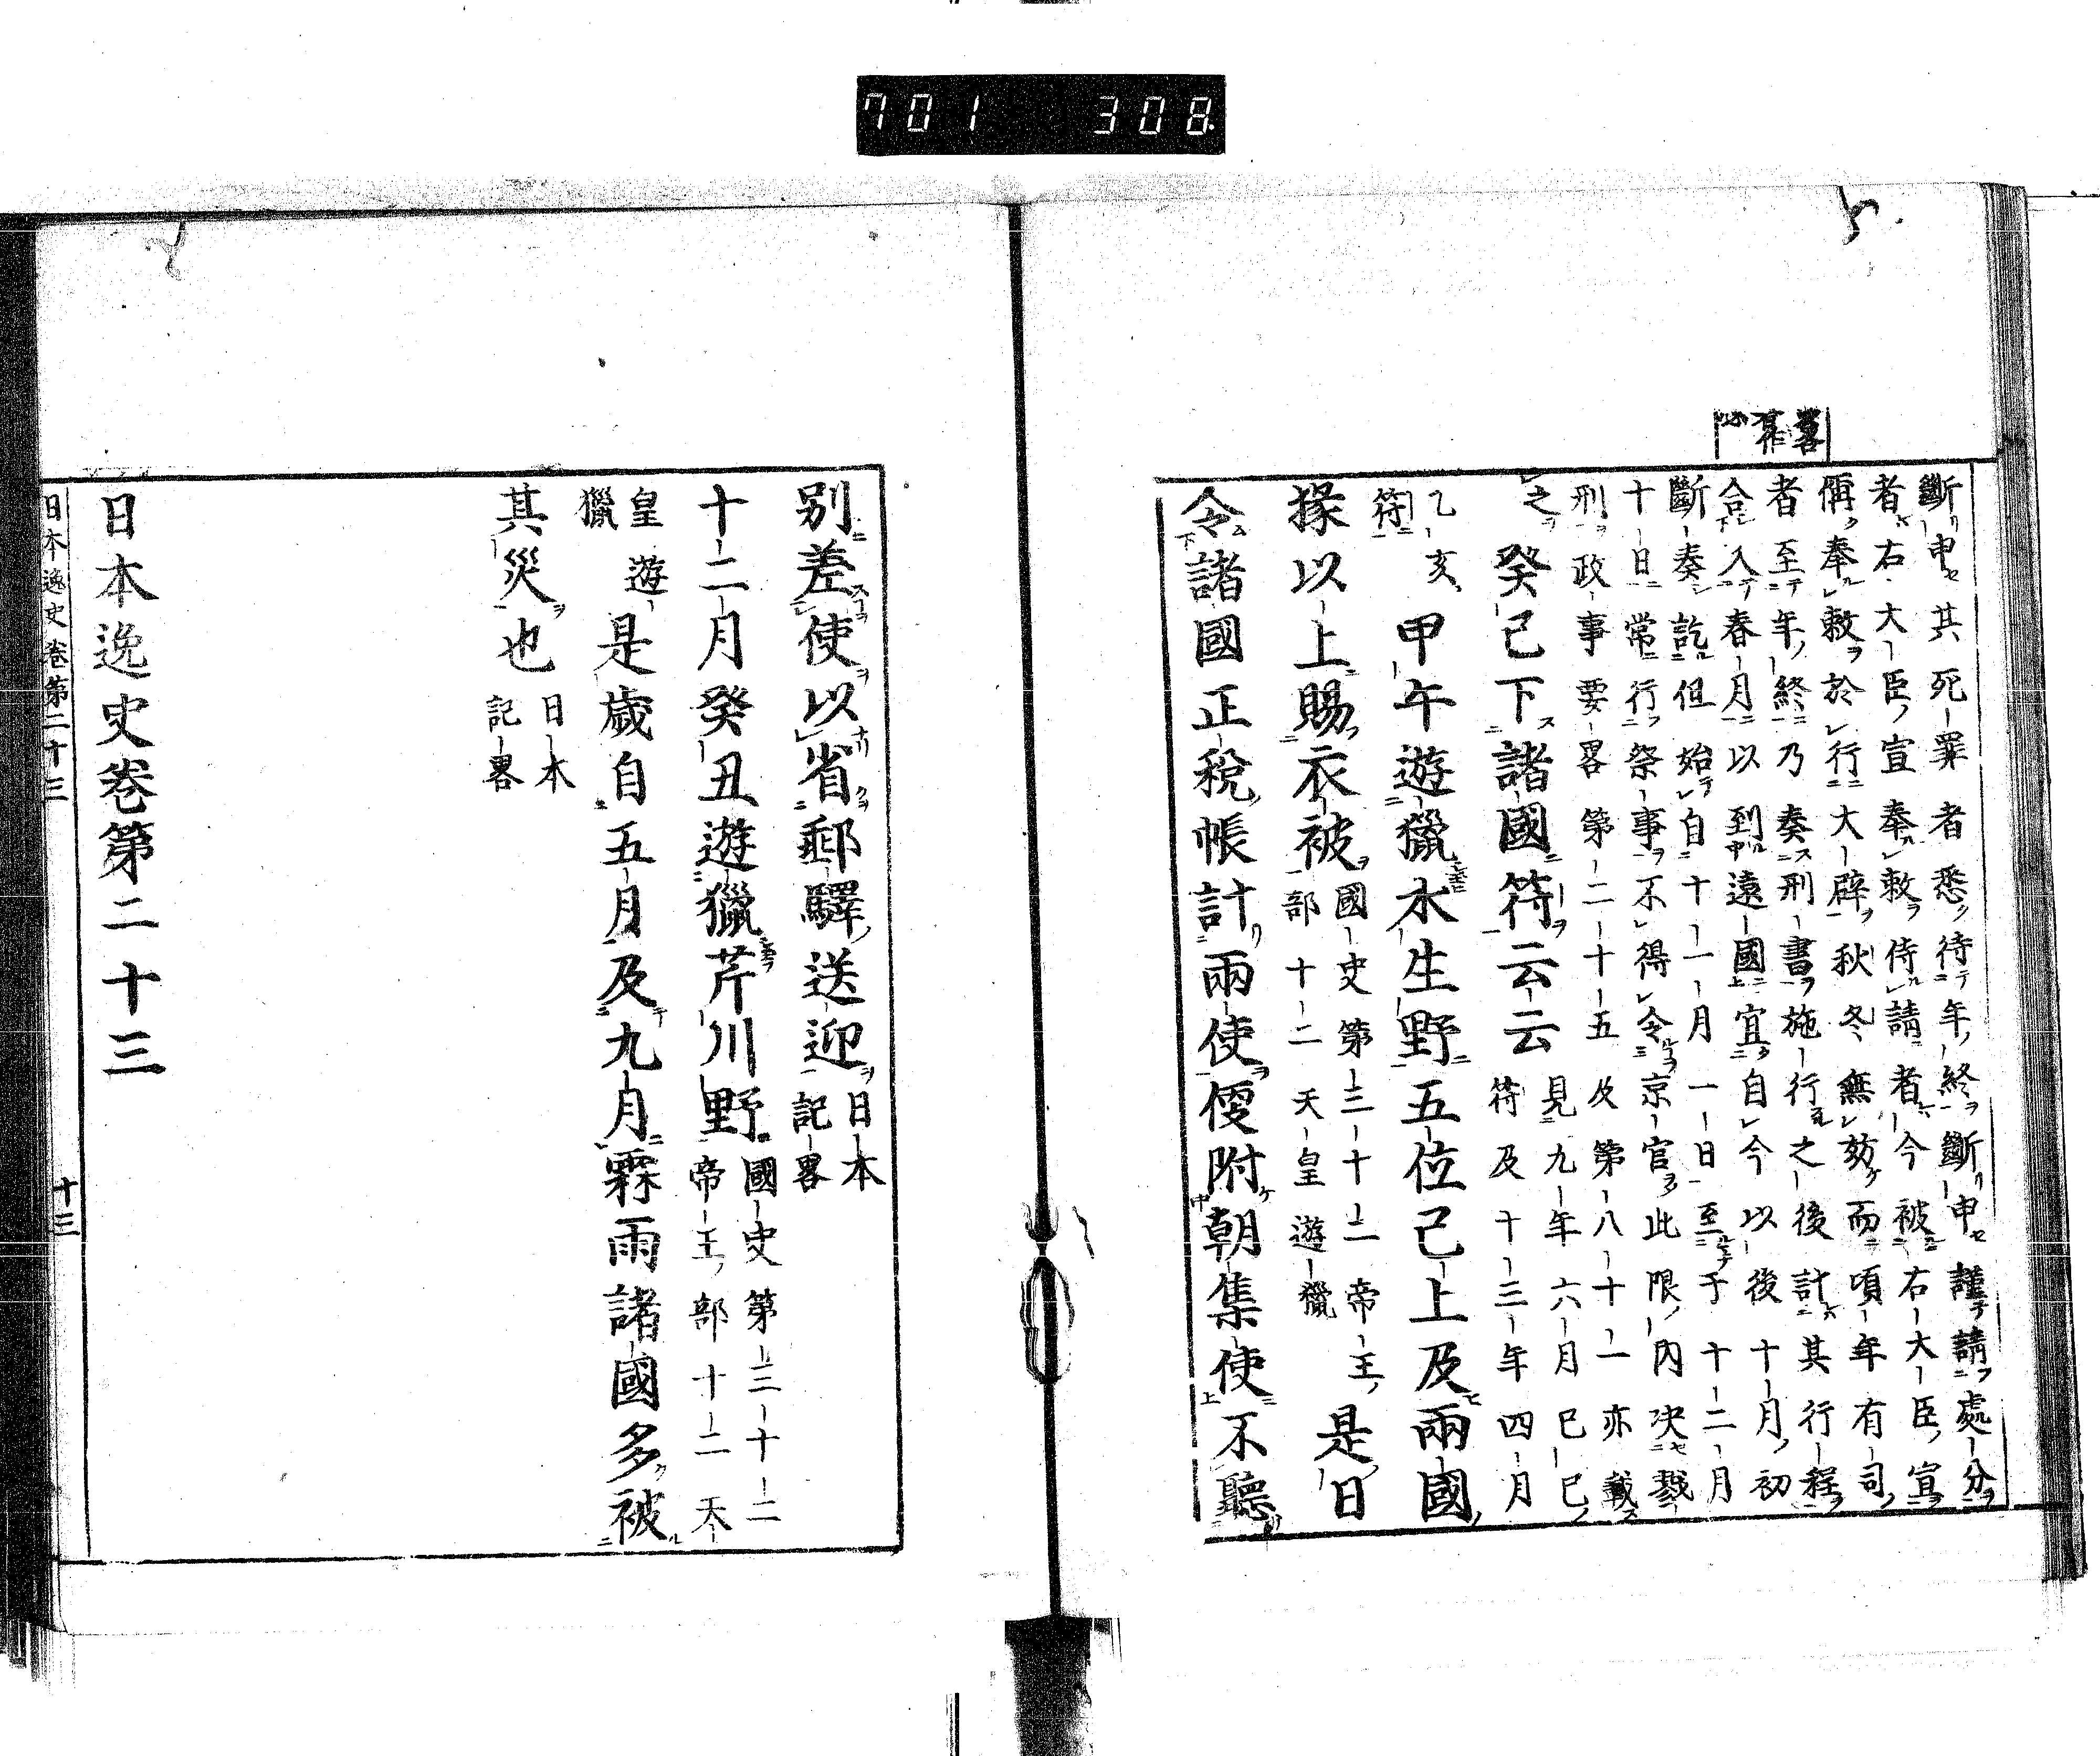 701 308
斷申其死罪者悉待年終斷申謹請處分
者右大臣宣奉敕侍請者今被右大臣宣
偁奉敕於行大辟秋冬無妨而頃年有司
者至年終乃奏刑書施行之後計其行程
合入春月以到遠國宜自今以後十月初
斷奏訖但始自十一月一日至于十二月
十日常行祭事不得令京官此限內决戮
刑政事要畧第二十五及第八十一亦載
之 癸已下諸國符云云 見九年六月巳巳
符及十三年四月
乙亥
符 甲午遊獵水生野五位已上及兩國
掾以上賜衣被 國史第三十二帝王
部十二天皇遊獵 是日
令諸國正稅帳計兩使便附朝集使不聽
別差使以省郵驛送迎 日本
記畧
十二月癸丑遊獵芹川野 國史第三十二
帝王部十二天
皇遊
獵 是歲自五月及九月霖雨諸國多被
其災也 日本
記畧
日本逸史卷第二十三
日本逸史卷第二十三 十三